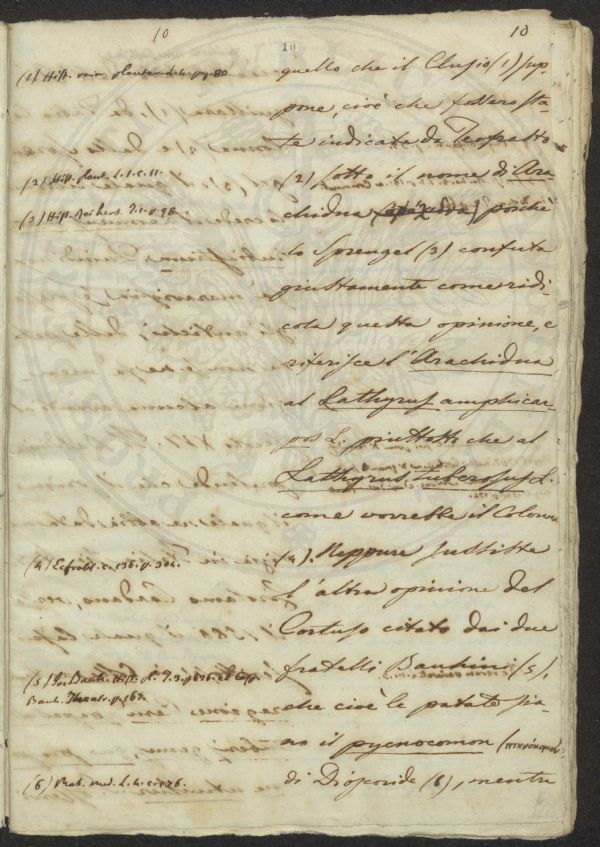 10
10
10
(1) Hist. rar. plantar. l. 4. pag. 80
(2) Hist. plant. l. 1. c. 11.
(3) Hist. rei herb. T. 1. p. 98
(4) Ecfrasis. c. 136. p. 304.
(5) Jo. Bauh. Hist. pl. T. 3. p.
Bauh. p. 167.
(6) Mat. med. l. 4. c. 176.
quello che il Clusio (1) sup-
pone, cioè che fossero sta-
te indicate da Teofrasto
(2) sotto il nome di Ara
chidna porchè
lo Sprengel (3) confuta
giustamente come ridi-
cola questa opinione, e
riferisce l'Arachidna
al Lathyrus amphicar-
pos L. piuttosto che al
Lathyrus tuberosus L.
come vorrebbe il Colonna
(4). Neppure sussiste
l'altra opinione del
Cortuso citato dai due
fratelli Bauhin (5),
che cioè le patate sia-
no il pycnocomon (πυκνόκομον)
di Dioscoride (6), mentre